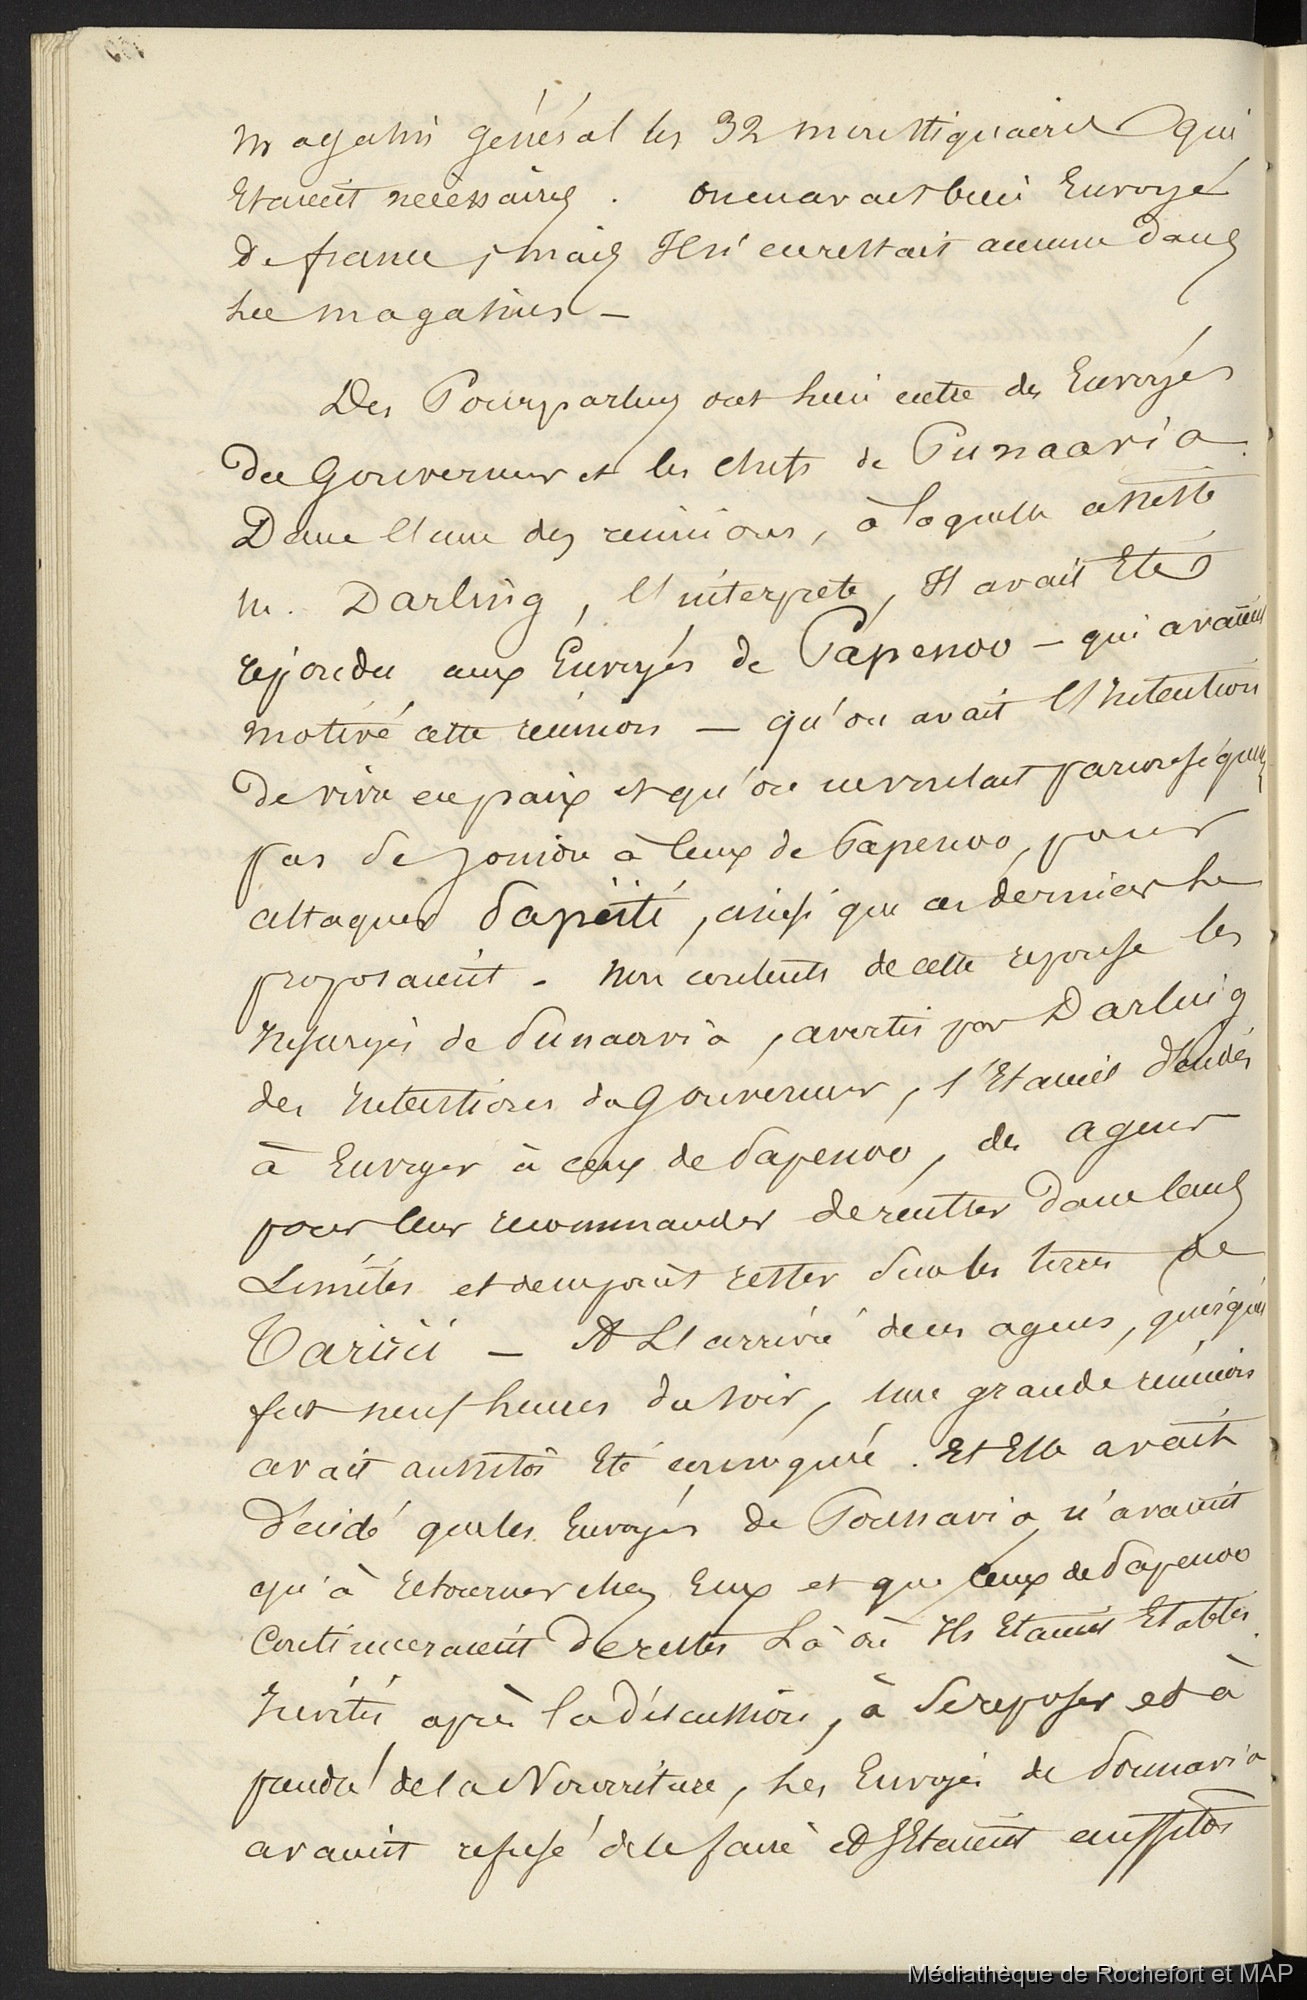 magasin général les 32 moustiquaires qui
Etaient nécessaires. On en avait bien Envoyé
De france, mais Il n'en restait aucune dans
les magasins —
Des Pourparlers ont lieu entre des Envoyés
du Gouverneur et les chefs de Punaavia.
Dans l'une des réunions, à laquelle assista
M. Darling, l'interprete, Il avait Eté
répondu aux Envoyés de Papenoo — qui avaient
motivé cette réunion — qu'on avait l'Intention
De vivre en paix et qu'on ne voulait par conséquent
pas se joindre à Ceux de Papenoo, pour
attaquer Papéïté, ainsi que ces derniers le
proposaient. Non contents de cette reponse les
Insurgés de Punaavia, avertis par Darling
des Intentions du Gouverneur, s'Etaient décidés
à Envoyer à ceux de Papenoo, des agens
pour leur recommander de rentrer Dans leurs
Limites et de ne point rester Sur les terres de
— A L'arrivée de ces agens, quoiqu'il
fut neuf heures du soir, une grande réunion
avait aussitôt Eté convoquée. Et Elle avait
Décidé que les Envoyés de Pounavia n'avaient
qu'à retourner chez Eux et que Ceux de Papenoo
Continueraient De rester Là où Ils Etaient Etablis.
Invités après la Discussion, à Se reposer et à
prendre de la Nourriture, les Envoyés de Pounavia
avaient refusé de le faire et S'Etaient aussitôt
Médiathèque de Rochefort et MAP